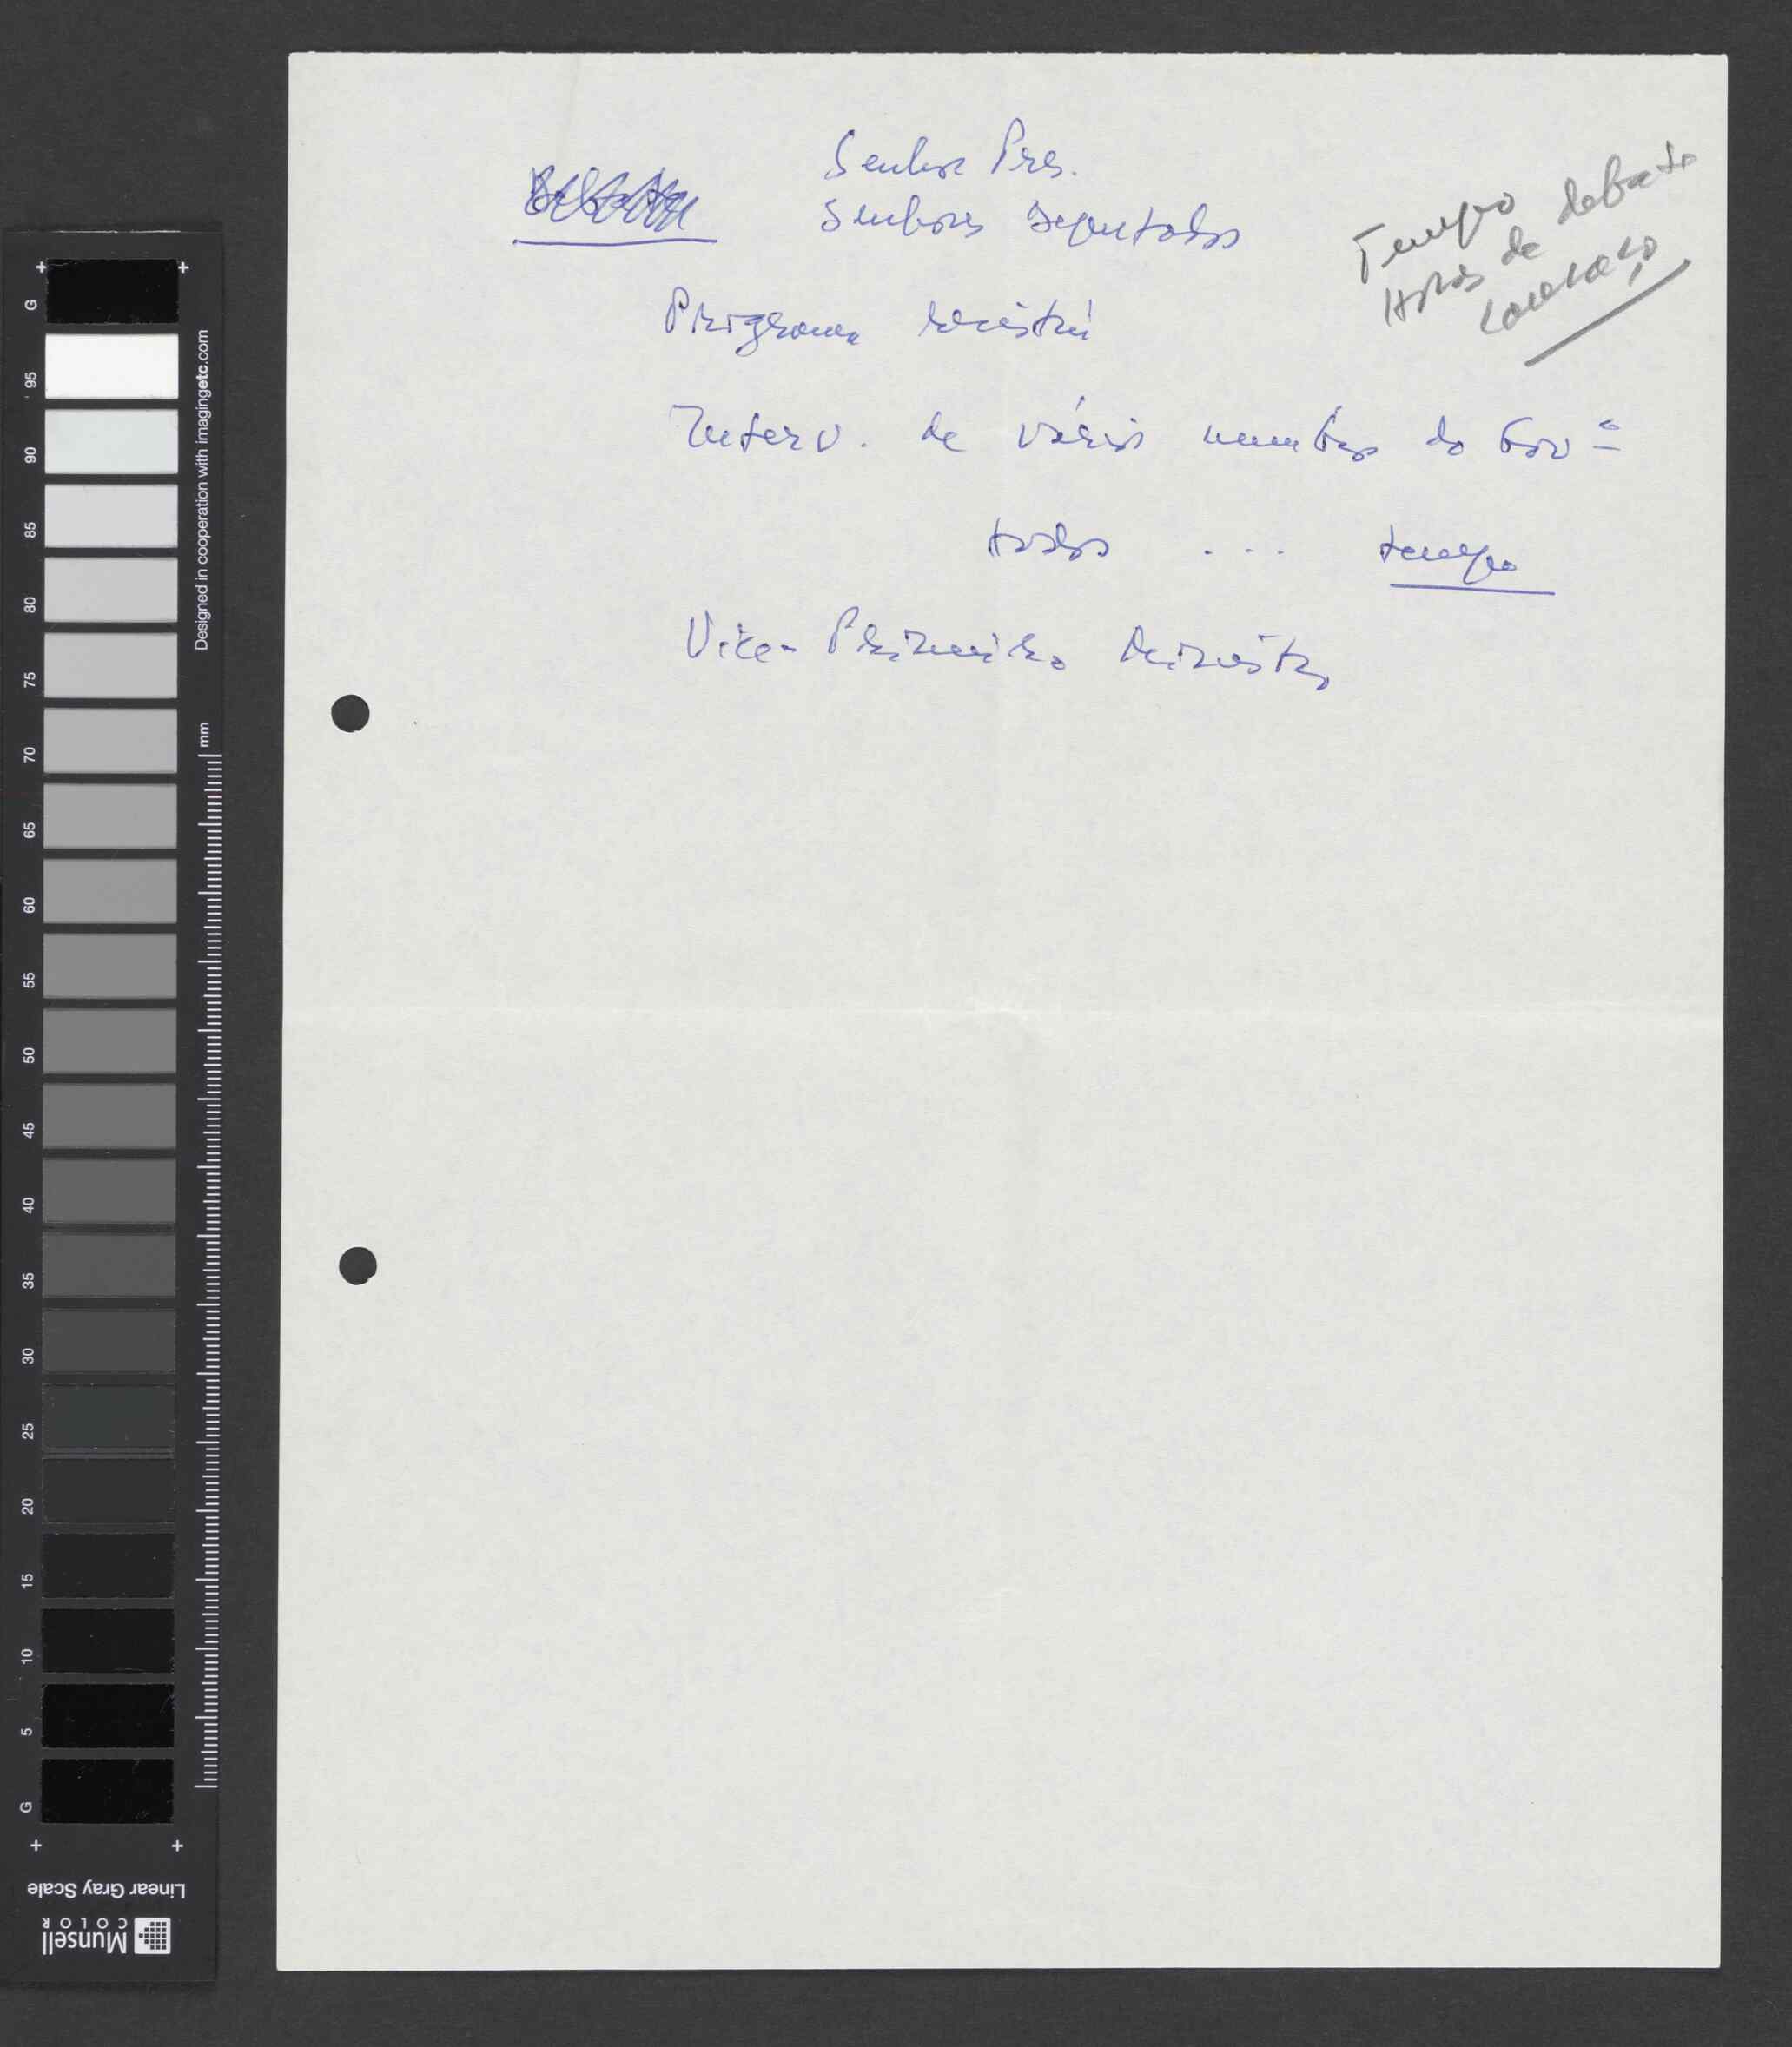 Senhor Pres.
Senhores Deputados
Tempo debate
Horas de
começo
Programa
Interv. de vários membros do Govº
todos .... tempo
Vice-Primeiro Ministro
Designed in cooperation with imagingetc.com
mm
G
95
90
85
80
75
70
65
60
55
50
45
40
35
30
25
20
15
10
5
G
Linear Gray Scale
Munsell
COLOR